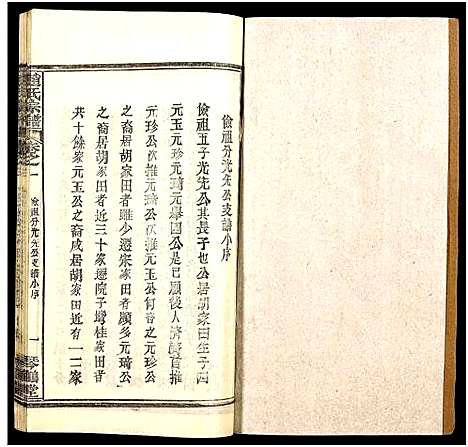 儉祖分光先公支譜小序
儉祖五子光先公其長子也公居胡家田生子四
元玉元珍元琦元舉國公是已厥後人濟濟首推
元珍公次推元玉公何啻之元珍公
之裔居胡家田者雖少遷宋家田者頗多元琦公
之裔居胡家田者近三十家遷院子塆桂家田者
共十餘家元玉公之裔咸居胡家田近有一二家
氏宗譜
卷之一
儉祖分光先公支譜小序
一
琴鶴堂